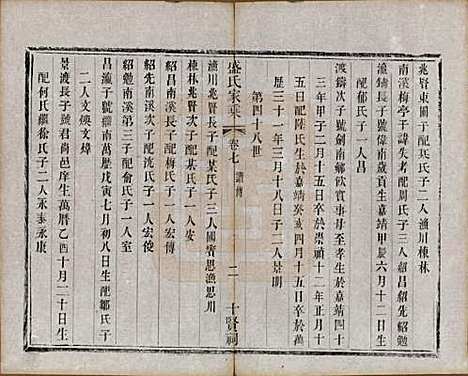 兆賢東園子配某氏子二人漁川棟林
南溪梅亭子諱失考配周氏子三人紹昌紹先紹
濤繼南長子號偉南歲貢生嘉靖年六月十二日生
配郁氏子一人昌
渡濤次子號劍南鄉飲賓事母至孝生於嘉靖四十
三年甲子二月十五日卒於崇禎十二年正月十
五日配陸氏生於嘉靖癸亥四月十五日卒於萬
歷三十一年三月十八日子二人景明
第四十八世
盛氏家乘
卷七
譜傳
二
十賢祠
漁川兆賢長子配某氏子三人國賓思漁思川
棟林兆賢次子配某氏子一人安
紹昌南溪長子配梅氏子一人宏傳
紹先南溪次子配許氏子一人宏使
紹勉南溪第三子配俞氏子一人室
昌濤子號繼南萬歷戊寅七月初八日生配鄒氏子
二人文煥文煒
景渡長子號君尚邑庠生萬曆乙酉十月二十日生
配何氏繼徐氏子二人永泰永康